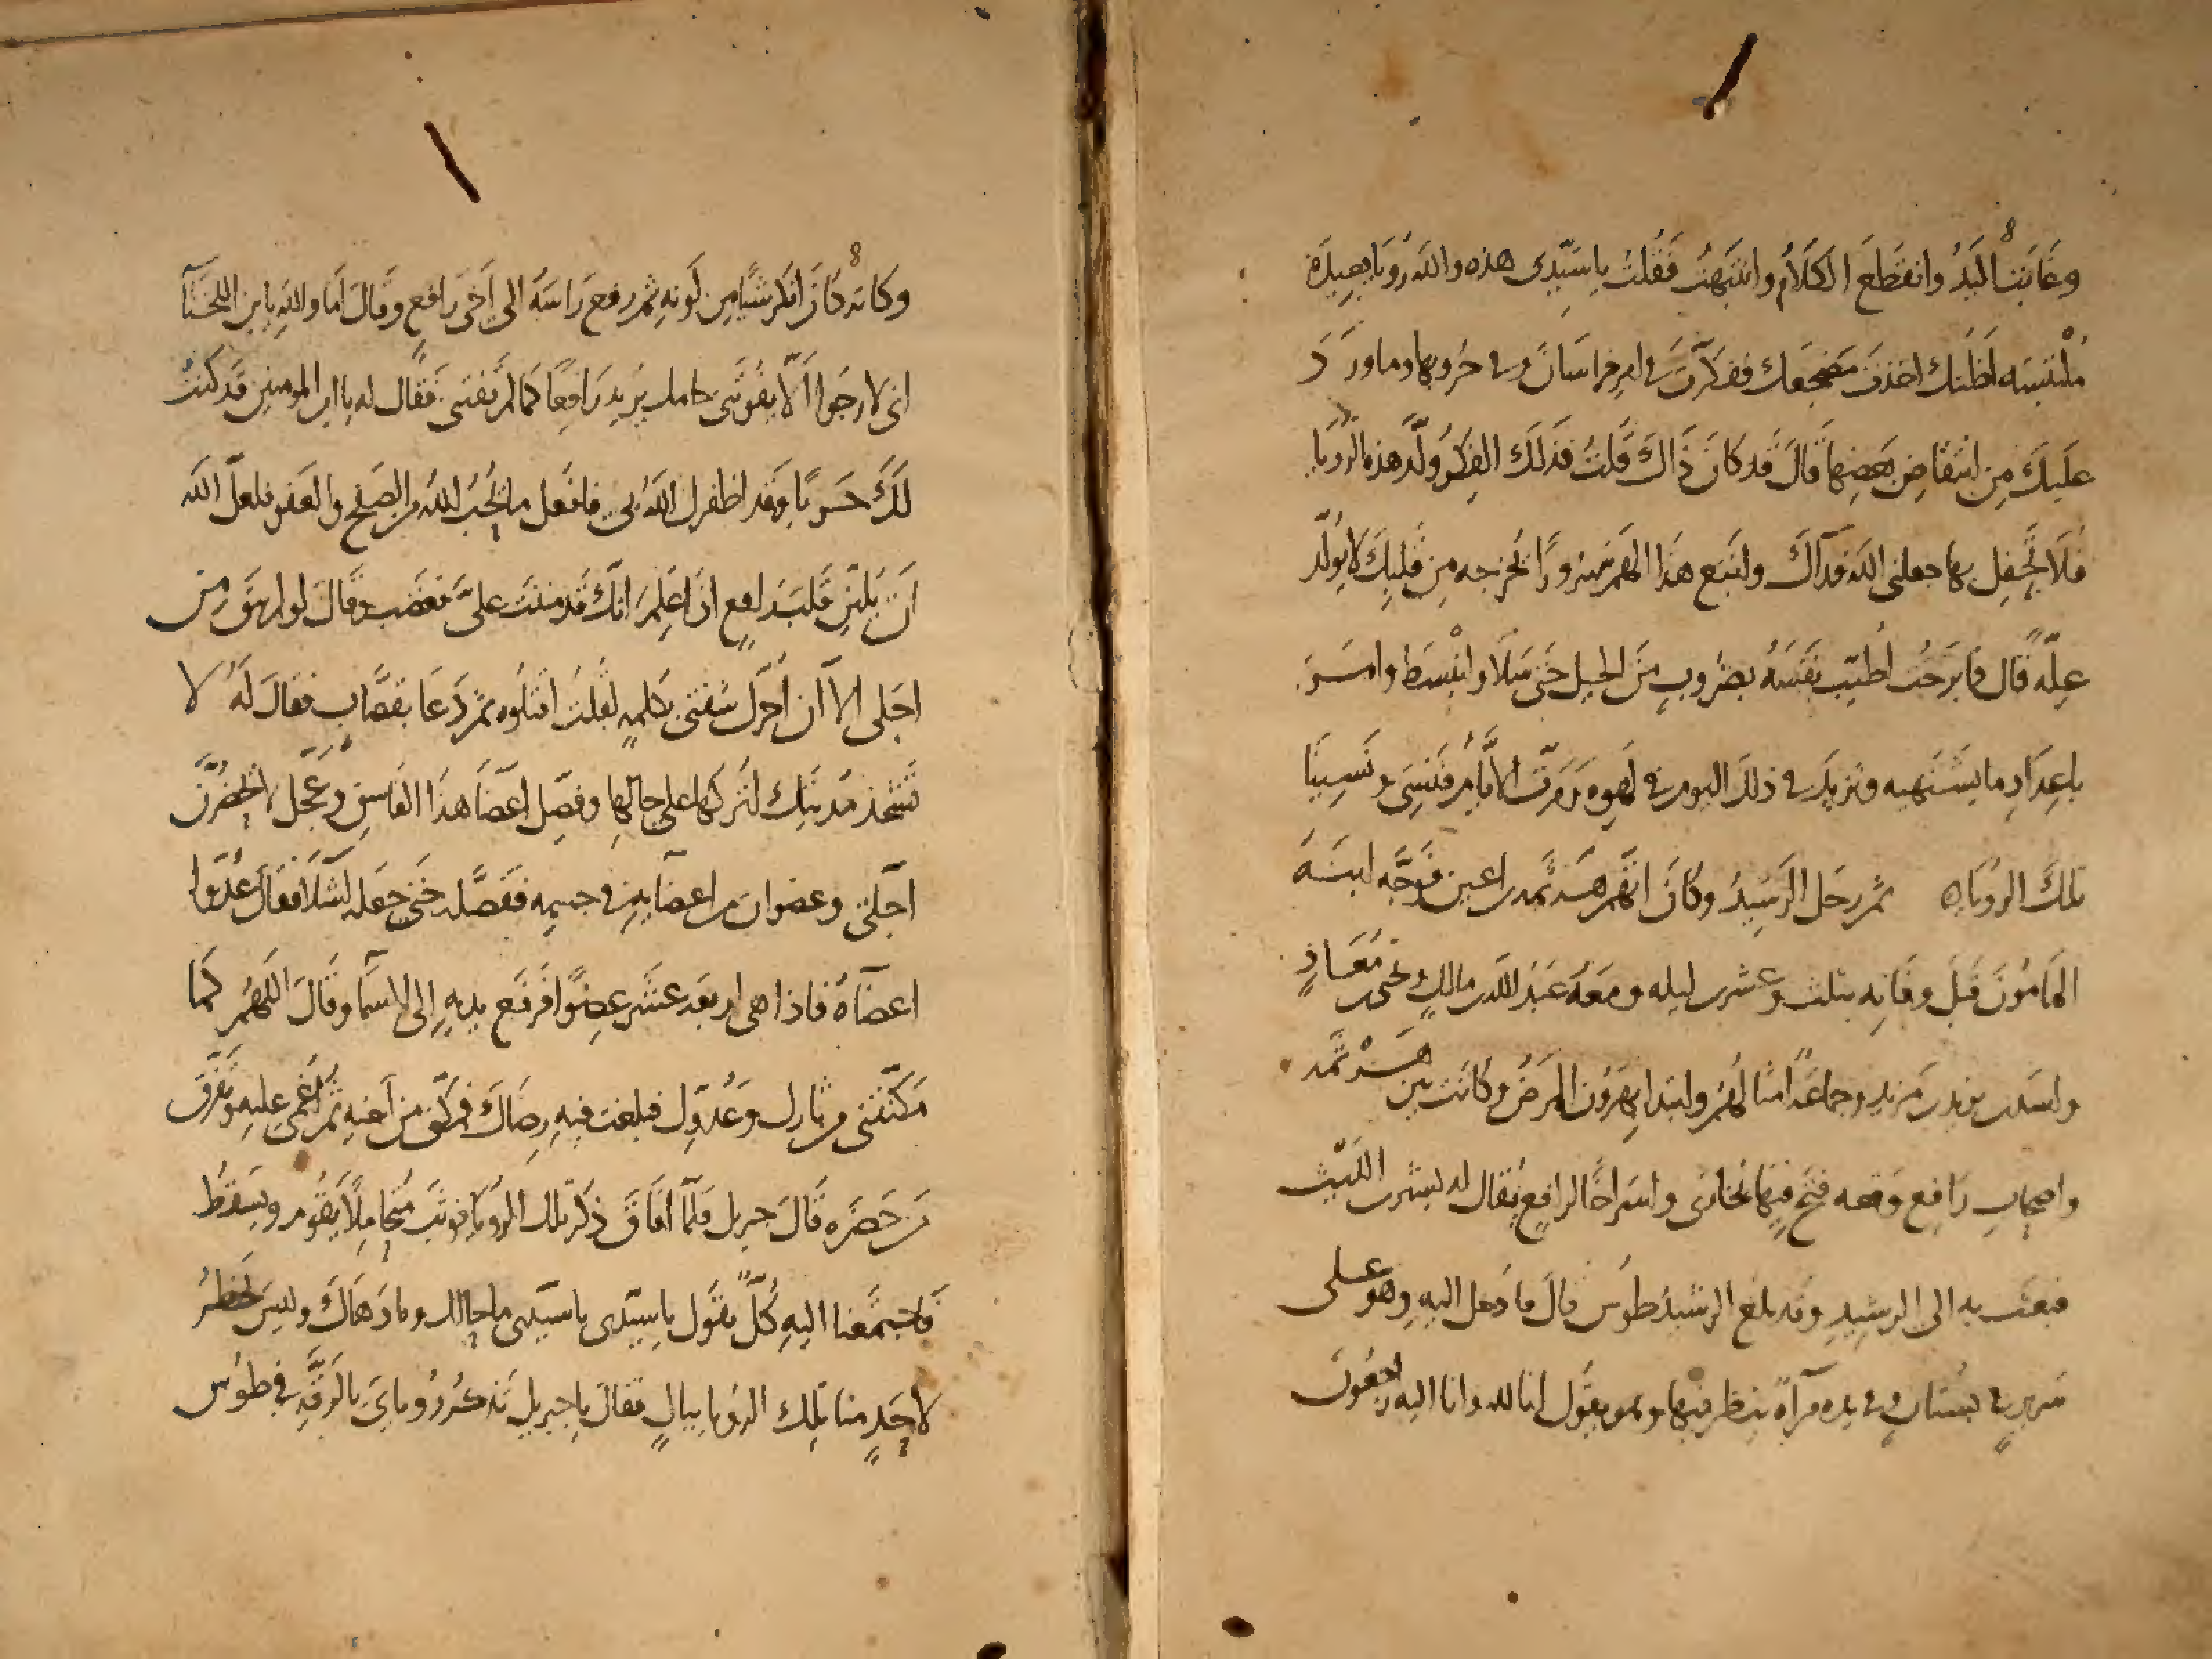 وغابت اليد وانقطع الكلام وانتبهت فقلت ياسيدى هذه والله رويا بعيدة
ملتبسه اظنك اخذت مضجعك ففكرت فى امر خراسان وفى حروبها وما ورد
عليك من انتقاض بعضها قال قد كان ذاك قلت فذلك الفكر ولد هذه الرويا
فلا تحفل بها جعلنى الله فداك واتبع هذا الهم سرورا يخرجه من قلبك لا يولد
علة قال فما برحت اطيب نفسه بضروب من الحيل حتى سلا وانبسط وامر
باعداد ما يشتهيه ونزيد فى ذلك اليوم فى لهوه ومرت الايام فنسى ونسينا
تلك الرويا ثم رحل الرشيد وكان اتهم هرثمة بن اعين فوجه ابنه
المامون قبل وفاته بثلث وعشرين ليله ومعه عبد الله بن مالك ويحيى بن معاذ
واسد بن يزيد بن مزيد وجماعة امثالهم وابتدا بهرون المرض وكانت بين هرثمة
واصحاب رافع وقعه فتح فيها بخارى واسر اخا لرافع يقال له بشير بن الليث
فبعث به الى الرشيد وقد بلغ الرشيد طوس قال فادخل اليه وهو على
سرير فى بستان وفى يده مرآة ينظر فيها وهو يقول انا لله وانا اليه راجعون
وكانه كان انكر شيا من لونه ثم رفع راسه الى اخى رافع وقال اما والله يا بن اللخنآ
انى لارجوا الا يفوتنى خامل يريد رافعا كما لم تفتنى فقال له يا امير المومنين قد كنت
لك حربا وقد اظفرك الله بى فافعل ما يحب الله من الصفح والعفو فلعل الله
ان يلين قلب رافع اذا علم انك قد مننت على فغضب وقال لو لم يبق من
اجلى الا ان احرك شفتى بكلمه لقلت اقتلوه ثم دعا بقصاب فقال له لا
تشحذ مديتك اتركها على حالها وفصل اعضا هذا الفاسق وعجل لا يحضرن
اجلى وعضوان من اعضايه فى جسمه ففصله حتى جعله اشلا فقال عدوا
اعضآه فاذا هى اربعه عشر عضوا فرفع يديه الى السما وقال اللهم كما
مكنتنى من ثارك وعدوك فبلغت فيه رضاك فمكنى من اخيه ثم اغمى عليه وتفرق
من حضره قال جبريل فلما افاق ذكر تلك الرويا فوثب متحاملا يقوم ويسقط
فاجتمعنا اليه كل يقول ياسيدى ياسيدى ما حالك وما دهاك وليس تخطر
لاحد منا تلك الرويا ببال فقال يا جبريل تذكر روياى بالرقه فى طوس